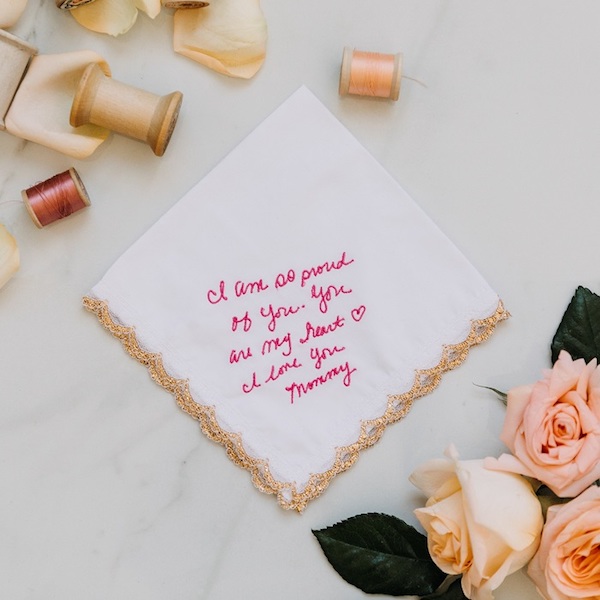 I am so proud
of you. You
are my heart ♡
I love you
Mommy